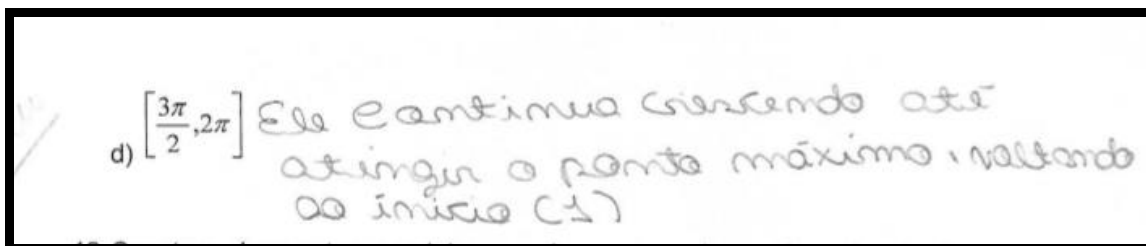 d) [3π/2, 2π] Ele continua crescendo até
atingir o ponto máximo, voltando
ao início (1)